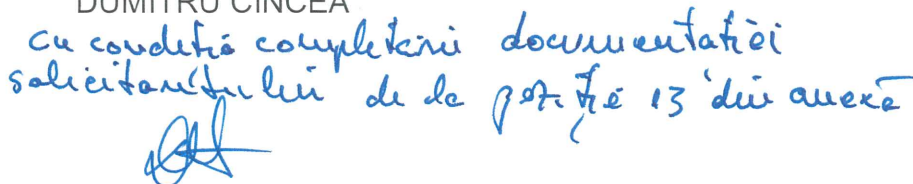 DUMITRU CINCEA
cu condiția completării documentației
solicitantului de la poziția 13 din anexă